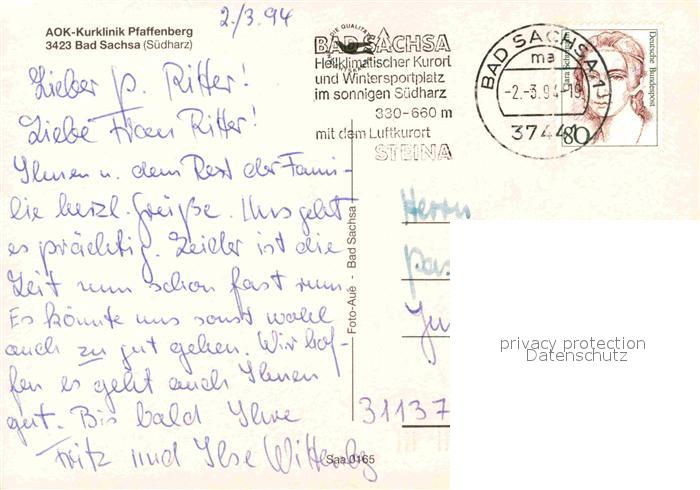 2./3.94
AOK-Kurklinik Pfaffenberg
3423 Bad Sachsa (Südharz)
Lieber P. Ritter!
Liebe Frau Ritter!
Ihnen u. dem Rest der Fami-
lie herzl. Grüße. Uns geht
es prächtig. Leider ist die
Zeit nun schon fast rum.
Es könnte uns sonst wohl
auch zu gut gehen. Wir hof-
fen es geht auch Ihnen
gut. Bis bald Ihre
Fritz und Ilse
BAD SACHSA
Heilklimatischer Kurort
und Wintersportplatz
im sonnigen Südharz
330-660 m
mit dem Luftkurort
STEINA
BAD SACHSA 1
ma
-2.-3.94-19
37441
Deutsche Bundespost
80
Foto-Aue - Bad Sachsa
Herrn
Pas
31137
Saa 0165
privacy protection
Datenschutz